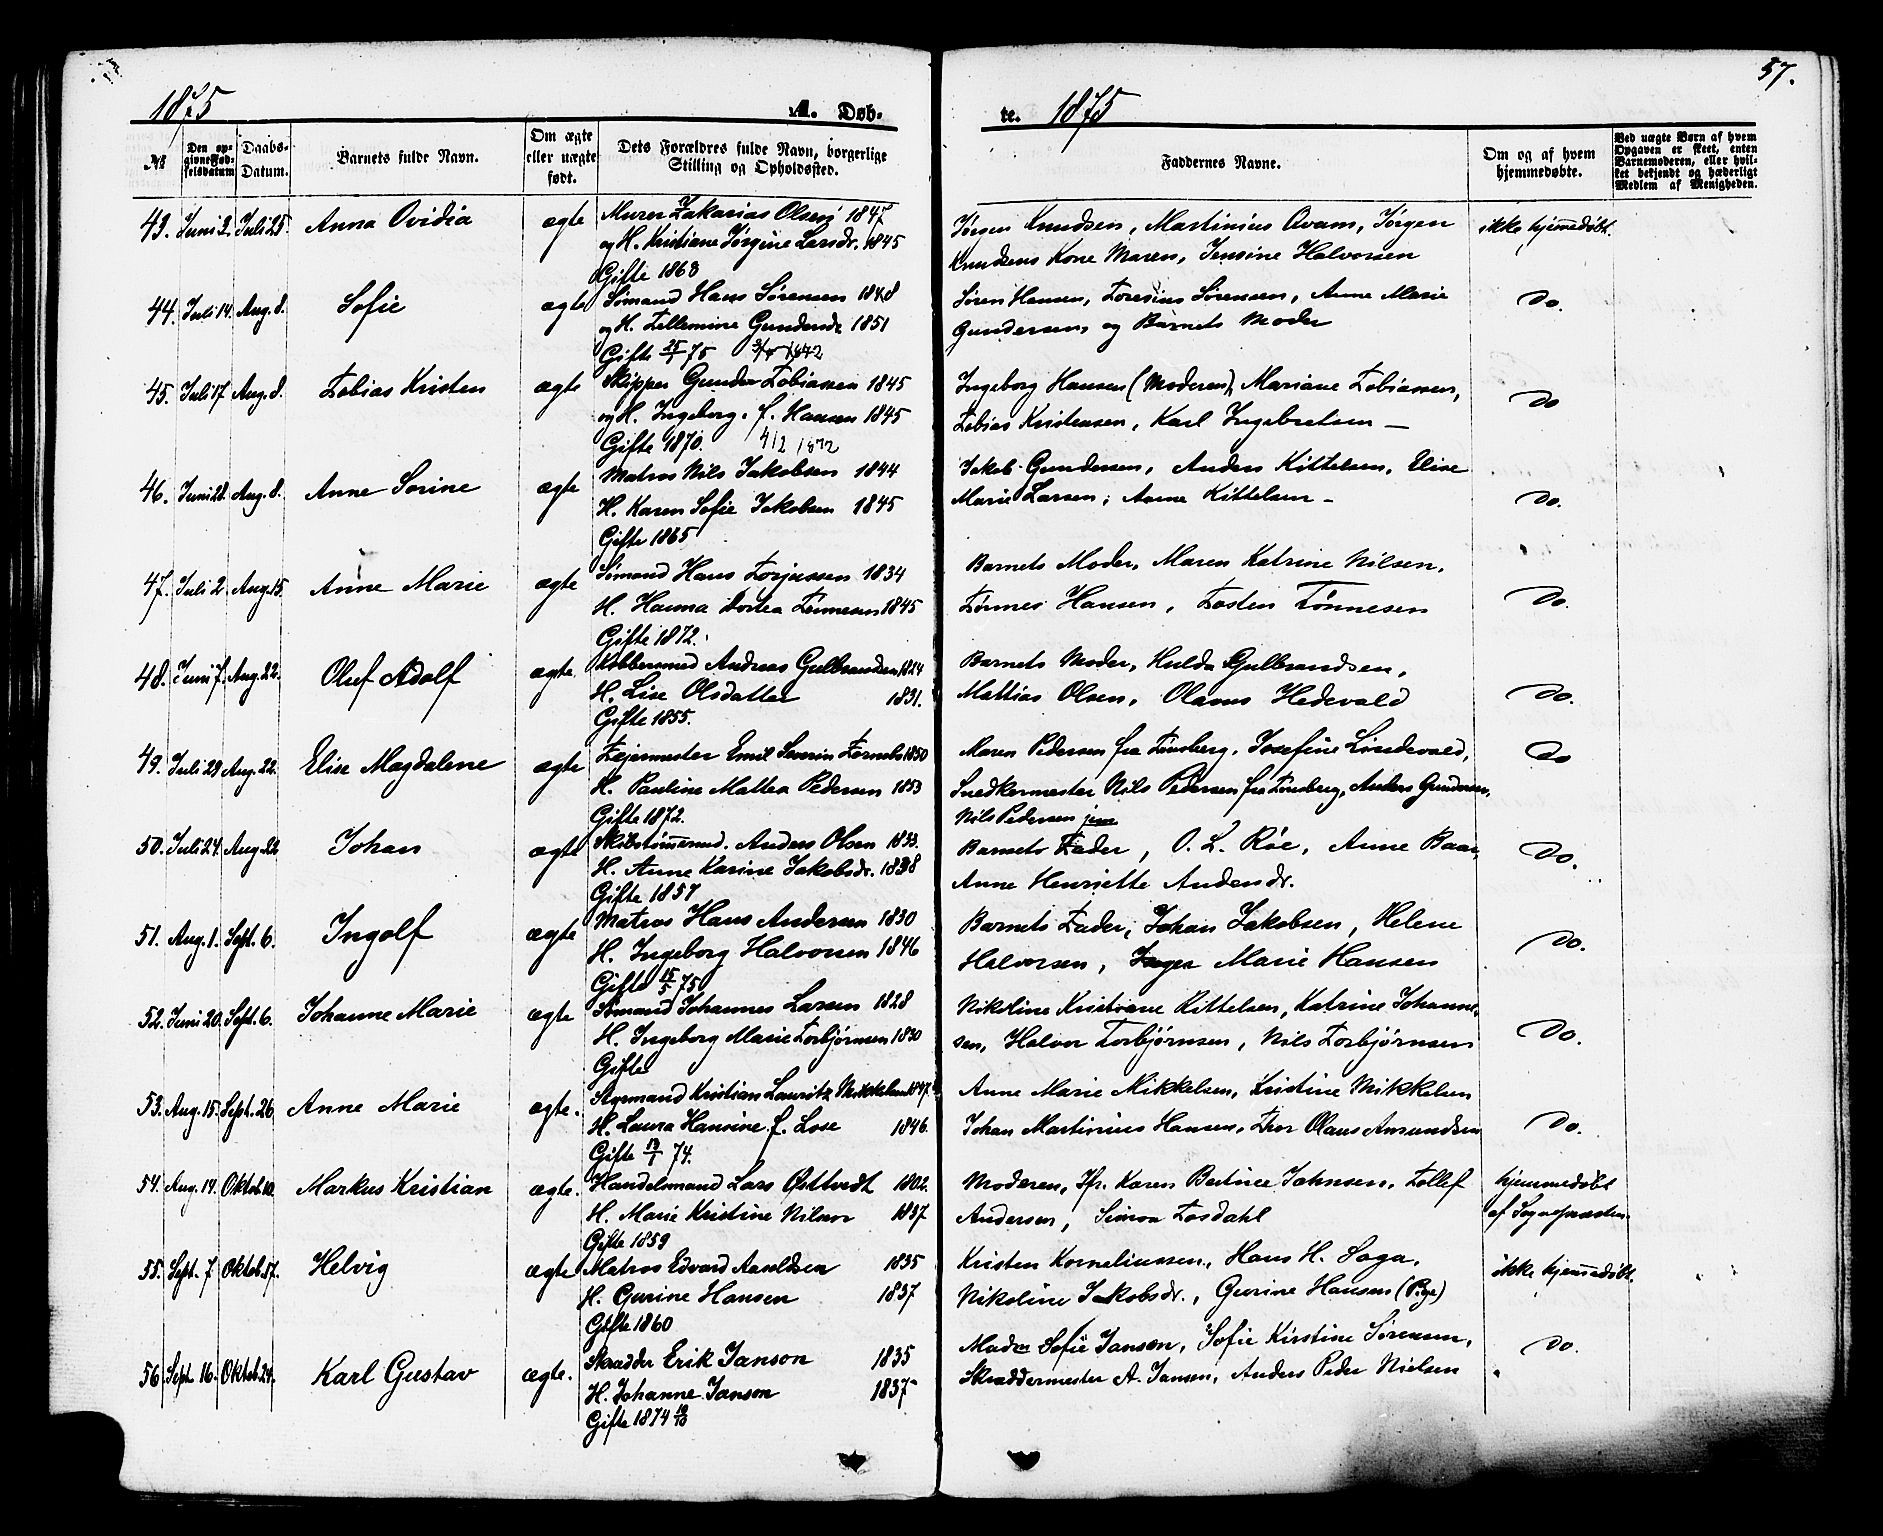 57.
1875 A. Døb-
te. 1875
No. Den opgivne Fødselsdatum Daabs-Datum. Barnets fulde Navn. Om ægte eller uægte født. Dets Forældres fulde Navn, borgerlige Stilling og Opholdssted.
Faddernes Navne. Om og af hvem hjemmedøbte. Ved uægte Børn af hvem Opgaven er skeet, enten Barnemoderen, eller hvilket bekjendt og hæderligt Medlem af Menigheden.
43. Juni 2. Juli 25. Anna Ovidia ægte Murer Zakarias Olsen 1847
og H. Kristiane Jørgine Larsdr. 1845
Gifte 1868
Jørgen Knudsen, Martinius Qvam, Jørgen
Knudsens Kone Maren, Jensine Halvorsen
ikke hjemmedøbt.
44. Juli 14. Aug. 8. Sofie ægte Sømand Hans Sørensen 1848
og H. Tellemine Gundersdr. 1851
Gifte 25/1 75
Søren Hansen, Toresius Sørensen, Anne Marie
Gundersen, og Barnets Moder
Do.
45. Juli 17 Aug. 8. Tobias Kristen ægte Skipper Gunder Tobiassen 1845
og H. Ingeborg. f. Hansen 1845
Gifte 1870. 4/2 1872
Ingeborg Hansen (Moderen), Mariane Tobiassen,
Tobias Kristensen, Karl Ingebretsen —
Do
46. Juni 28. Aug. 8. Anne Sorine ægte Matros Nils Jakobsen 1844
H. Karen Sofie Jakobsen 1845
Gifte 1865
Jakob Gundersen, Anders Kittelsen, Elise
Marie Larsen, Anne Kittelsen —
Do.
47. Juli 2 Aug. 15. Anne Marie ægte Sømand Hans Torjussen 1834
H. Hanna Dortea Tønnesen 1845
Gifte 1872.
Barnets Moder, Maren Katrine Nilsen,
Tønnes Hansen, Tosten Tønnesen
Do.
48. Juni 7. Aug. 22. Oluf Adolf ægte. Kobbersmed Andreas Gulbrandsen 1824
H. Lise Olsdatter 1831.
Gifte 1855.
Barnets Moder, Hulda Gulbrandsen,
Mattias Olsen, Olavus Hedevald
Do.
49. Juli 29 Aug. 22. Elise Magdalene ægte Tøjermester Emil Severin 1850
H. Pauline Mattea Pedersen 1853
Gifte 1872.
Maren Pedersen fra Tønsberg, Josefine Lindevald,
Snedkermester Nils Pedersen fra Tønsberg, Anders Gundersen,
Nils Pedersen jun
Do
50. Juli 24. Aug. 22 Johan ægte Skibstømmermd. Anders Olsen 1833.
H. Anne Karine Jakobsdr. 1838
Gifte 1857
Barnets Fader, O. L. Røe, Anne Baar,
Anne Henriette Andersdr.
Do.
51. Aug. 1. Sept. 6. Ingolf ægte Matros Hans Andersen 1830
H. Ingeborg Halvorsen 1846
Gifte 15/5 75
Barnets Fader, Johan Jakobsen, Helene
Halvorsen, Inger Marie Hansen
Do.
52. Juni 20. Sept. 6. Johanne Marie ægte Sømand Johannes Larsen 1828
H. Ingeborg Marie Torbjørnsen 1830
Gifte
Nikoline Kristiane Kittelsen, Katrine Johanne-
sen, Halvor Torbjørnsen, Nils Torbjørnsen
Do.
53. Aug. 15. Sept. 26. Anne Marie ægte. Styrmand Kristian Lauritz Mikkelsen 1847.
H. Laura Hansine f. Lose 1846.
Gifte 13/1 74.
Anne Marie Mikkelsen, Kristine Mikkelsen
Johan Martinius Hansen, Thor Olaus Amundsen
Do.
54. Aug. 14. Oktob. 10. Markus Kristian ægte. Handelsmand Lars Østtvedt 1802.
H. Marie Kristine Nilsen 1837
Gifte 1859
Moderen, Jfr. Karen Bertine Johnsen, Tollef
Andersen, Simon Tosdahl
hjemmedøbt
af Sognepresten.
55. Sept. 7 Oktob. 17. Helvig ægte Matros Edvard Aanldsen 1835
H. Gurine Hansen 1837
Gifte 1860
Kristen Korneliussen, Hans H. Soga,
Nikoline Jakobsdr., Gurine Hansen (Pige)
ikke hjemmedøbt.
56. Sept 16. Oktob. 24. Karl Gustav ægte. Skrædder Erik Janson 1835
H. Johanne Janson 1837
Gifte 1874
Madm Sofie Janson, Sofie Kirstine Sørensen,
Skræddermester A. Jansen, Anders Peder Nielsen
Do.